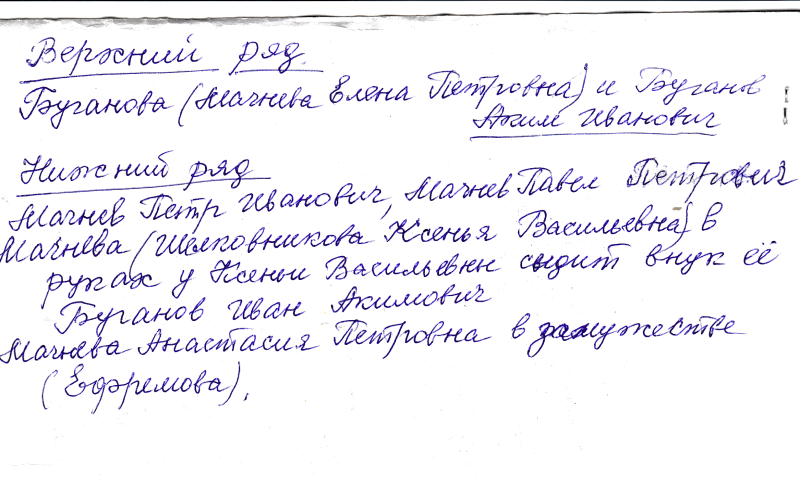 Верхний ряд.
Буганова (Мачнева Елена Петровна) и Буганов
Аким Иванович
Нижний ряд
Мачнев Петр Иванович, Мачнев Павел Петрович
Мачнева (Шелковникова Ксенья Васильевна) в
руках у Ксеньи Васильевны сидит внук её
Буганов Иван Акимович
Мачнева Анастасия Петровна в замужестве
(Ефремова).